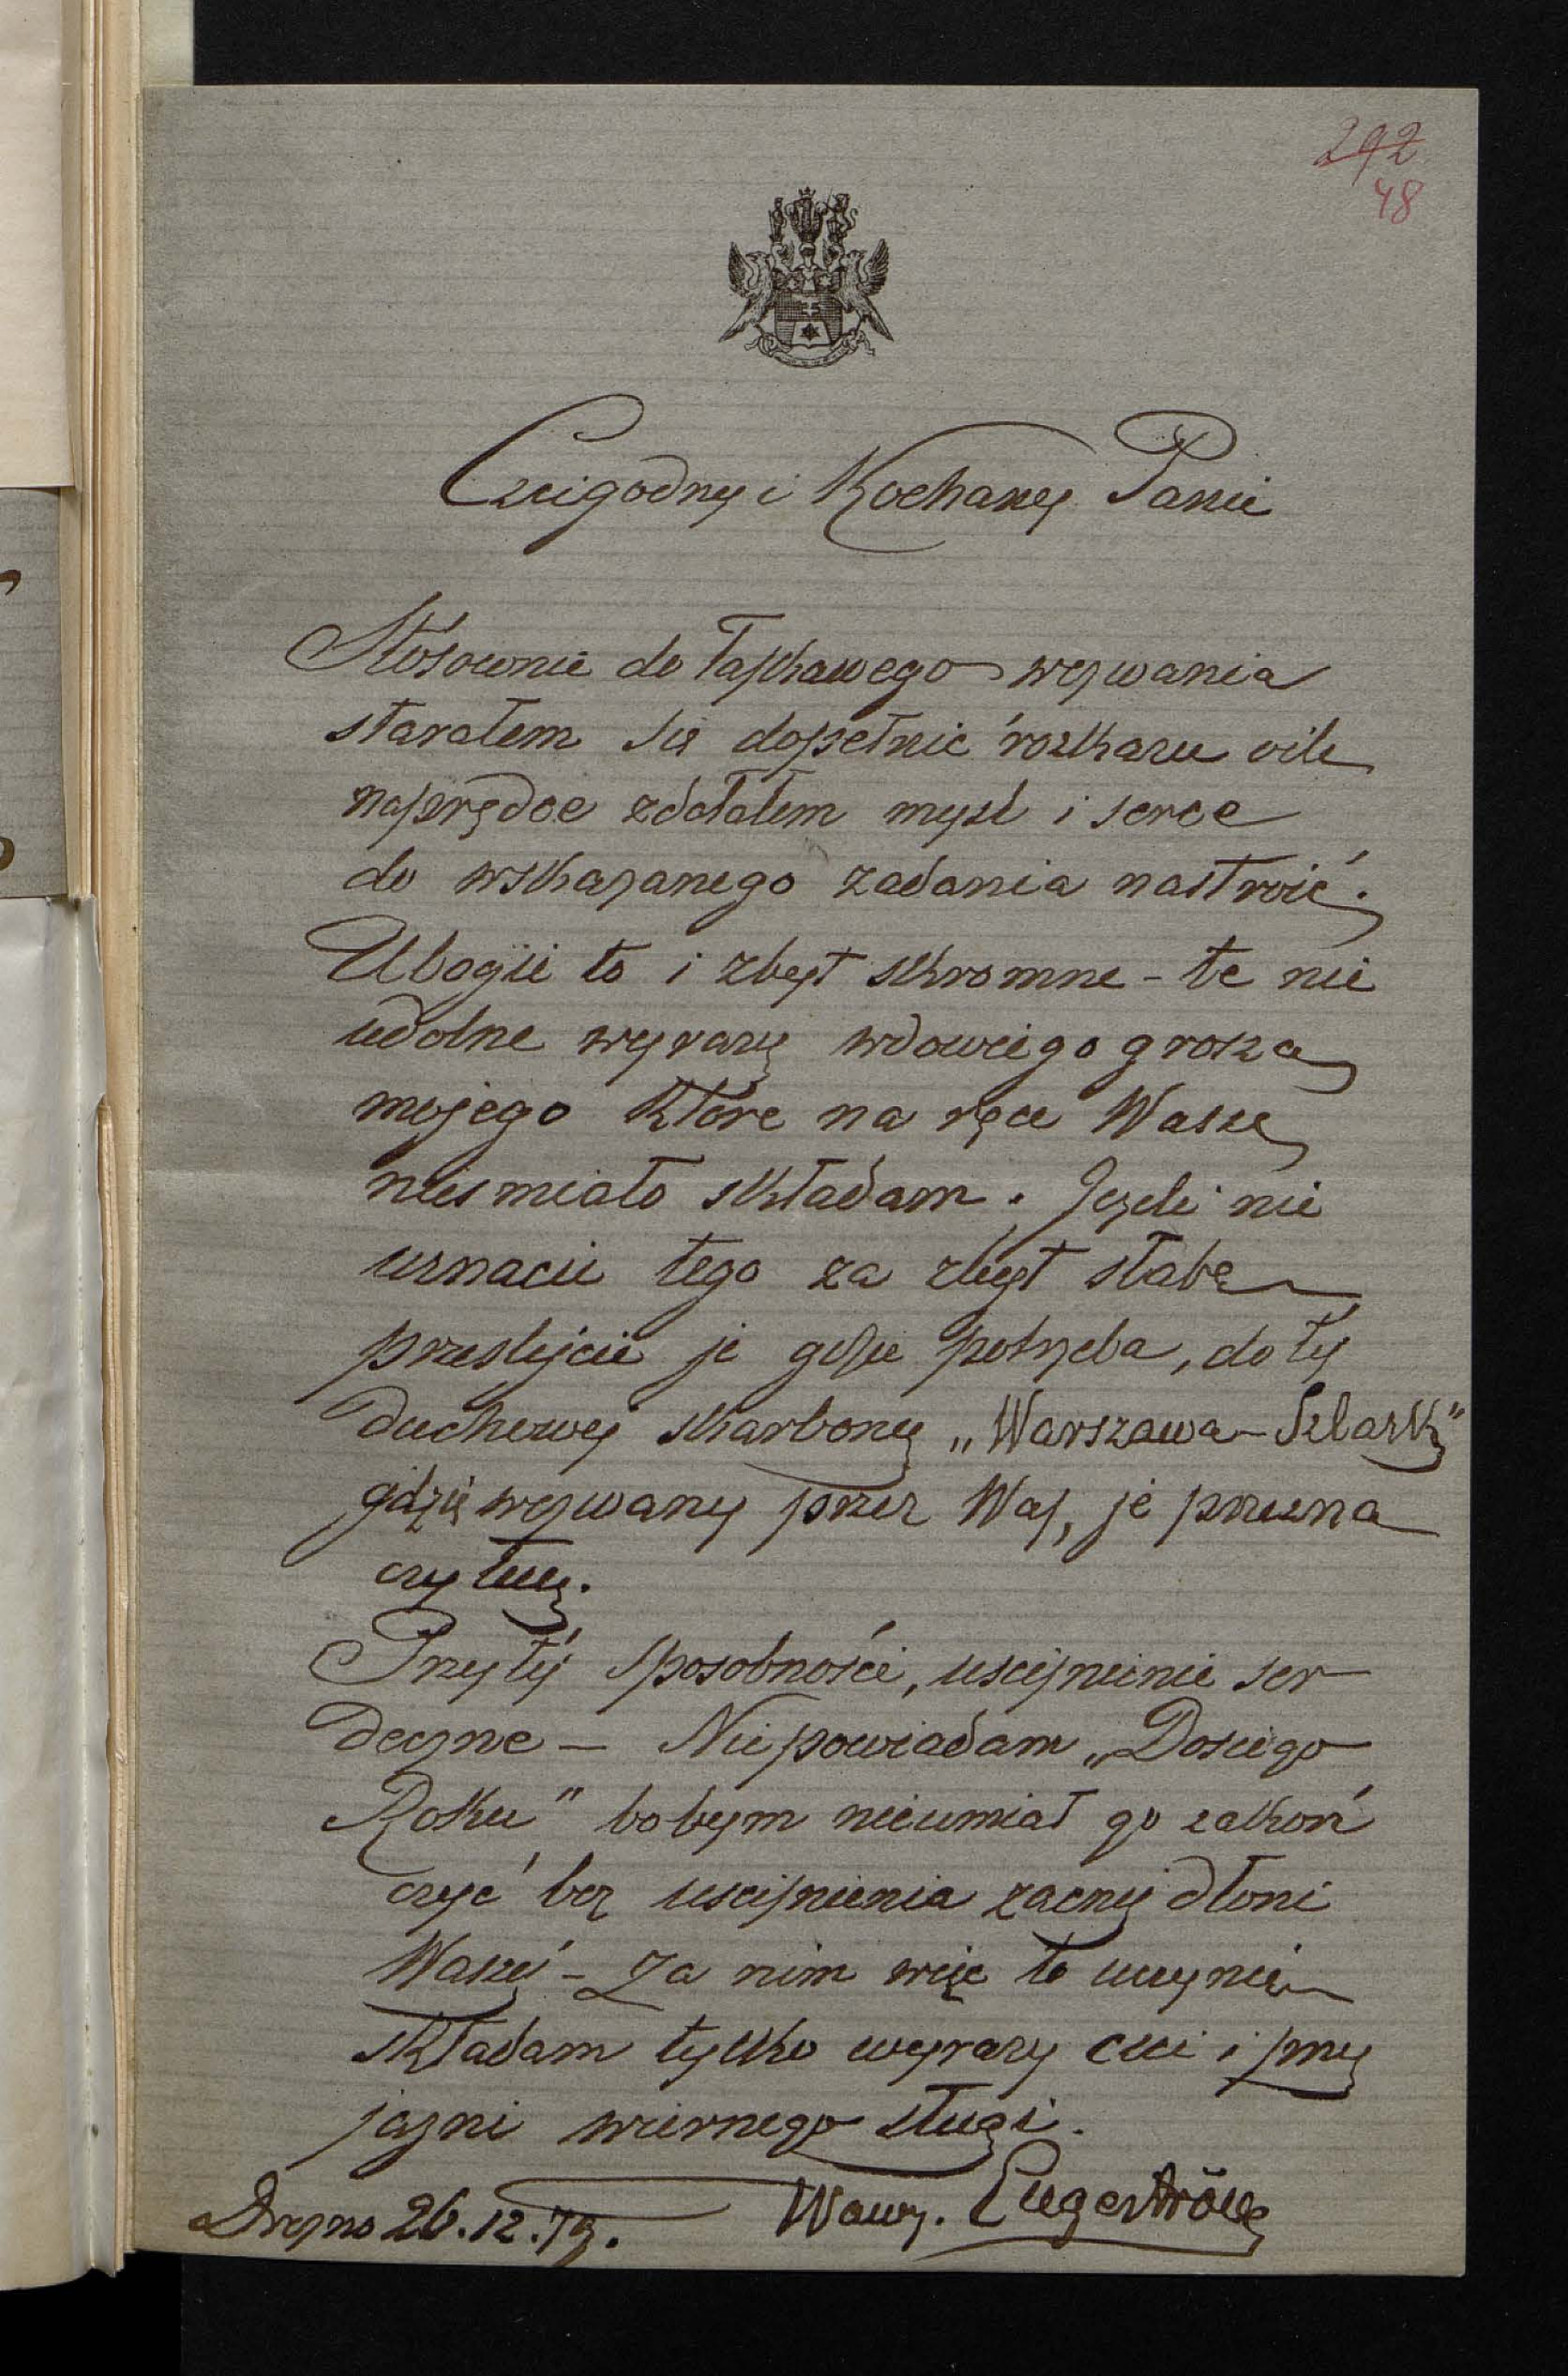 292
48
Czcigodny i Kochany Panie
Stósownie do łaskawego wezwania
starałem się dopełnić rozkazu oile
naprędce zdołałem mysl i serce
do wskazanego zadania nastroić.
Ubogie to i zbyt skromne - te nie
udolne wyrazy wdowiego grosza
mojego które na ręce Wasze
niesmiało składam. Jezeli nie
uznacie tego za zbyt słabe
przeslijcie je gdzie potrzeba, do téj
duchowej skarbony „Warszawa-Szlązk"
gdzie wezwany przez Was, je przezna
czyłem.
Przy téj sposobności, uscisnienie ser
deczne - Nie powiadam „Dosiego
Roku" bobym nieumiał go zakoń
czyć bez uscisnienia zacnej dłoni
Waszéj - Za nim więc to uczynię
składam tylko wyrazy czci i przy
jazni wiernego sługi.
Drezno 26.12.79. Wawrz. Engeström